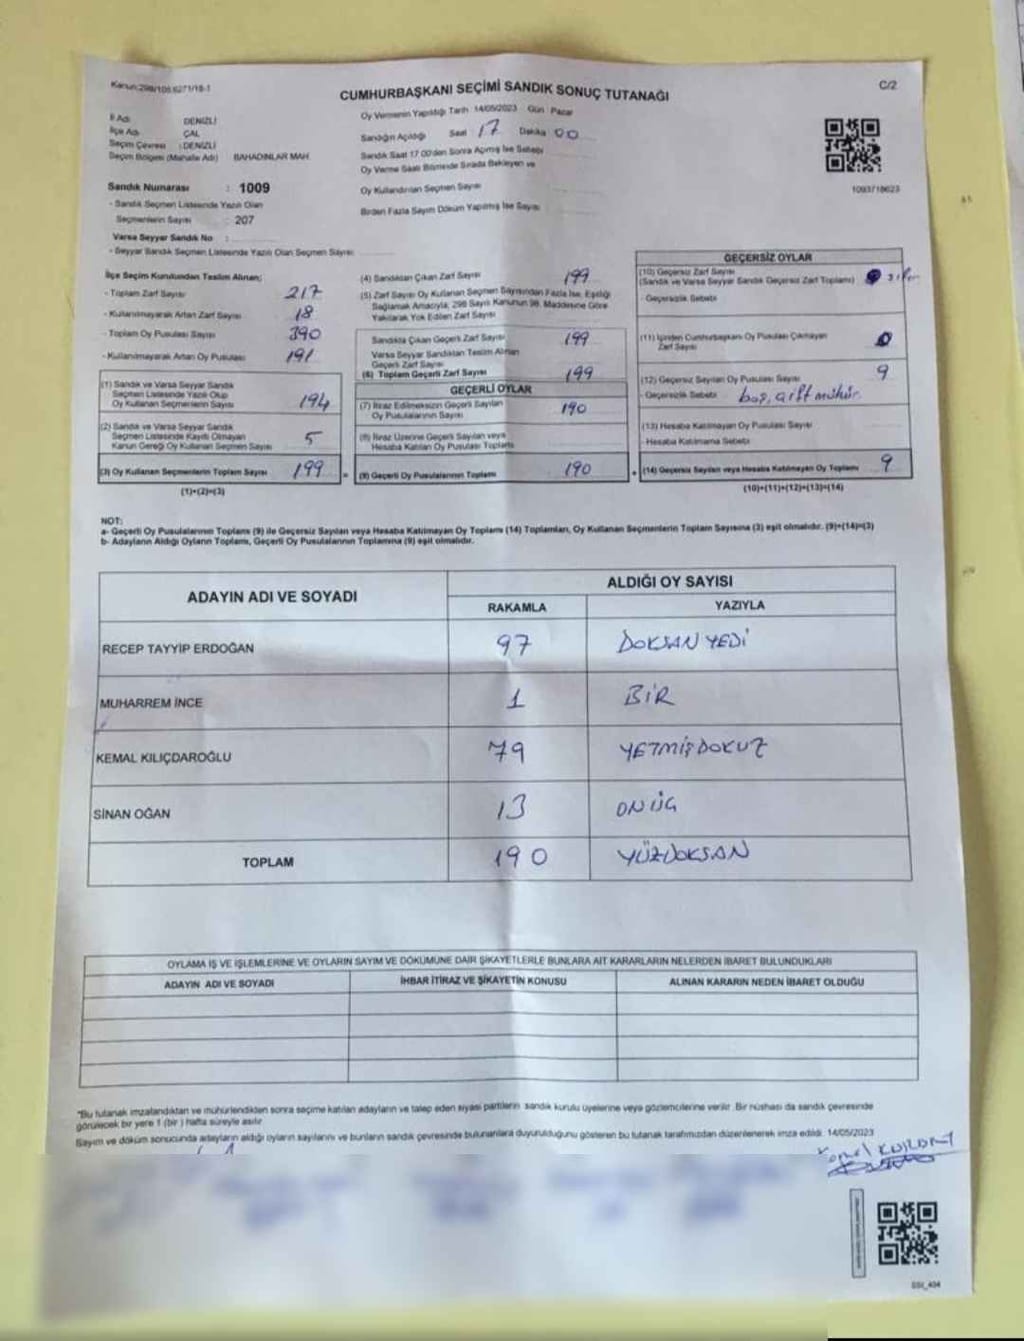 Kanun:298/105,6271/18-1
CUMHURBAŞKANI SEÇİMİ SANDIK SONUÇ TUTANAĞI
C/2
İl Adı DENİZLİ
İlçe Adı ÇAL
Seçim Çevresi : DENİZLİ
Seçim Bölgesi (Mahalle Adı) BAHADINLAR MAH.
Sandık Numarası : 1009
- Sandık Seçmen Listesinde Yazılı Olan
Seçmenlerin Sayısı : 207
Varsa Seyyar Sandık No :
- Seyyar Sandık Seçmen Listesinde Yazılı Olan Seçmen Sayısı
Oy Vermenin Yapıldığı Tarih 14/05/2023 Gün Pazar
Sandığın Açıldığı Saat 17 Dakika 00
Sandık Saat 17.00'den Sonra Açılmış İse Sebebi
Oy Verme Saati Bitiminde Sırada Bekleyen ve
Oy Kullandırılan Seçmen Sayısı
Birden Fazla Sayım Döküm Yapılmış İse Sayısı
1093718623
İlçe Seçim Kurulundan Teslim Alınan;
- Toplam Zarf Sayısı 217
- Kullanılmayarak Artan Zarf Sayısı 18
- Toplam Oy Pusulası Sayısı 390
- Kullanılmayarak Artan Oy Pusulası 191
(1) Sandık ve Varsa Seyyar Sandık
Seçmen Listesinde Yazılı Olup
Oy Kullanan Seçmenlerin Sayısı 194
(2) Sandık ve Varsa Seyyar Sandık
Seçmen Listesinde Kayıtlı Olmayan
Kanun Gereği Oy Kullanan Seçmen Sayısı 5
(3) Oy Kullanan Seçmenlerin Toplam Sayısı 199
(1)+(2)=(3)
(4) Sandıktan Çıkan Zarf Sayısı 199
(5) Zarf Sayısı Oy Kullanan Seçmen Sayısından Fazla İse, Eşitliği
Sağlamak Amacıyla, 298 Sayılı Kanunun 98. Maddesine Göre
Yakılarak Yok Edilen Zarf Sayısı
Sandıkta Çıkan Geçerli Zarf Sayısı 199
Varsa Seyyar Sandıktan Teslim Alınan
Geçerli Zarf Sayısı
(6) Toplam Geçerli Zarf Sayısı 199
GEÇERLİ OYLAR
(7) İtiraz Edilmeksizin Geçerli Sayılan
Oy Pusulalarının Sayısı 190
(8) İtiraz Üzerine Geçerli Sayılan veya
Hesaba Katılan Oy Pusulaları Toplamı
= (9) Geçerli Oy Pusulalarının Toplamı 190
GEÇERSİZ OYLAR
(10) Geçersiz Zarf Sayısı
(Sandık ve Varsa Seyyar Sandık Geçersiz Zarf Toplamı) sıfır
- Geçersizlik Sebebi
(11) İçinden Cumhurbaşkanı Oy Pusulası Çıkmayan
Zarf Sayısı 0
(12) Geçersiz Sayılan Oy Pusulası Sayısı 9
- Geçersizlik Sebebi boş, çift mühür.
(13) Hesaba Katılmayan Oy Pusulası Sayısı
- Hesaba Katılmama Sebebi
+ (14) Geçersiz Sayılan veya Hesaba Katılmayan Oy Toplamı 9
(10)+(11)+(12)+(13)=(14)
NOT:
a- Geçerli Oy Pusulalarının Toplamı (9) ile Geçersiz Sayılan veya Hesaba Katılmayan Oy Toplamı (14) Toplamları, Oy Kullanan Seçmenlerin Toplam Sayısına (3) eşit olmalıdır. (9)+(14)=(3)
b- Adayların Aldığı Oyların Toplamı, Geçerli Oy Pusulalarının Toplamına (9) eşit olmalıdır.
ADAYIN ADI VE SOYADI
ALDIĞI OY SAYISI
RAKAMLA YAZIYLA
RECEP TAYYİP ERDOĞAN 97 DOKSAN YEDİ
MUHARREM İNCE 1 BİR
KEMAL KILIÇDAROĞLU 79 YETMİŞDOKUZ
SİNAN OĞAN 13 ONÜÇ
TOPLAM 190 YÜZDOKSAN
OYLAMA İŞ VE İŞLEMLERİNE VE OYLARIN SAYIM VE DÖKÜMÜNE DAİR ŞİKAYETLERLE BUNLARA AİT KARARLARIN NELERDEN İBARET BULUNDUKLARI
ADAYIN ADI VE SOYADI İHBAR İTİRAZ VE ŞİKAYETİN KONUSU ALINAN KARARIN NEDEN İBARET OLDUĞU
"Bu tutanak imzalandıktan ve mühürlendikten sonra seçime katılan adayların ve talep eden siyasi partilerin sandık kurulu üyelerine veya gözlemcilerine verilir. Bir nüshası da sandık çevresinde
görülecek bir yere 1 (bir) hafta süreyle asılır.
Sayım ve döküm sonucunda adayların aldığı oyların sayılarını ve bunların sandık çevresinde bulunanlara duyurulduğunu gösteren bu tutanak tarafımızdan düzenlenerek imza edildi. 14/05/2023